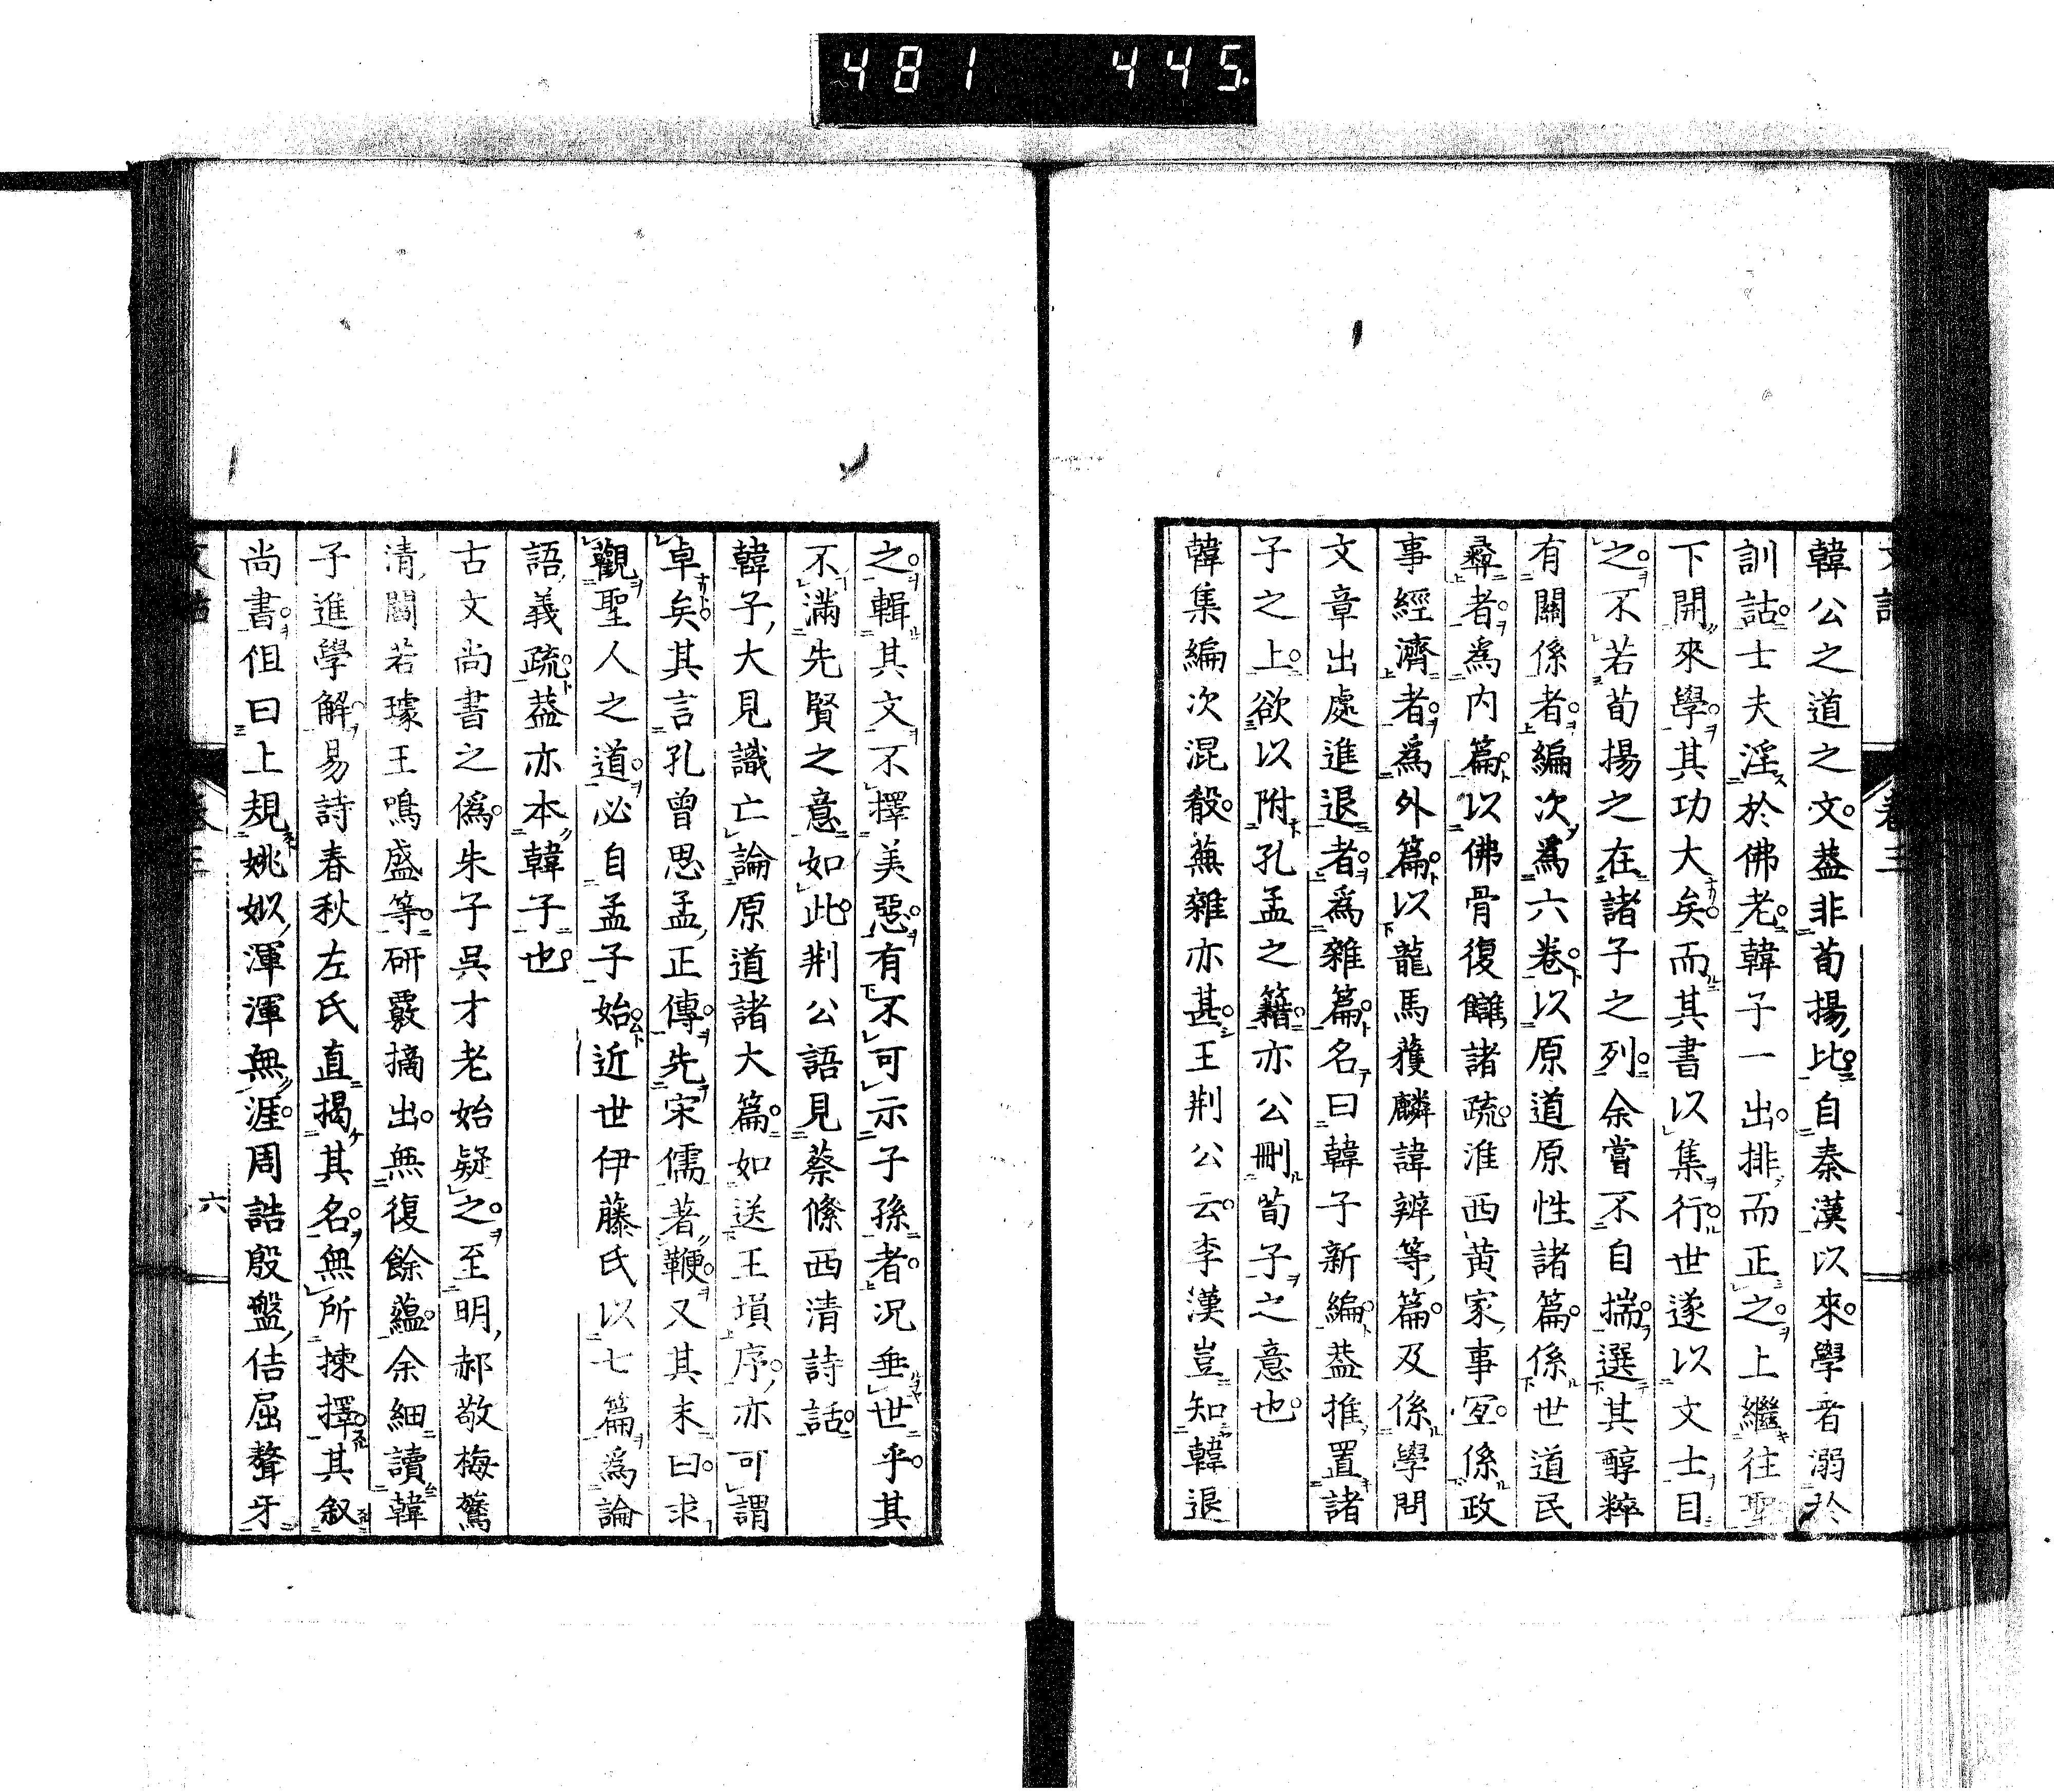 481 445
韓公之道之文蓋非荀揚比自秦漢以來學者溺於
訓詁士夫淫於佛老韓子一出排而正之上繼往聖
下開來學其功大矣而其書以集行世遂以文士目
之不若荀揚之在諸子之列余嘗不自揣選其醇粹
有關係者編次爲六卷以原道原性諸篇係世道民
彜者爲内篇以佛骨復讎諸疏淮西黄家事宜係政
事經濟者爲外篇以龍馬獲麟諱辨等篇及係學問
文章出處進退者爲雜篇名曰韓子新編蓋推置諸
子之上欲以附孔孟之籍亦公刪荀子之意也
韓集編次混殽蕪雜亦甚王荆公云李漢豈知韓退
之輯其文不擇美惡有不可示子孫者况垂世乎其
不滿先賢之意如此荆公語見蔡絛西清詩話
韓子大見識亡論原道諸大篇如送王塤序亦可謂
卓矣其言孔曾思孟正傳先宋儒著鞭又其末曰求
觀聖人之道必自孟子始近世伊藤氏以七篇爲論
語義疏蓋亦本韓子也
古文尚書之僞朱子吳才老始疑之至明郝敬梅鷟
清閻若璩王鳴盛等研覈摘出無復餘蘊余細讀韓
子進學解易詩春秋左氏直揭其名無所揀擇其叙
尚書但曰上規姚姒渾渾無涯周誥殷盤佶屈聱牙
六